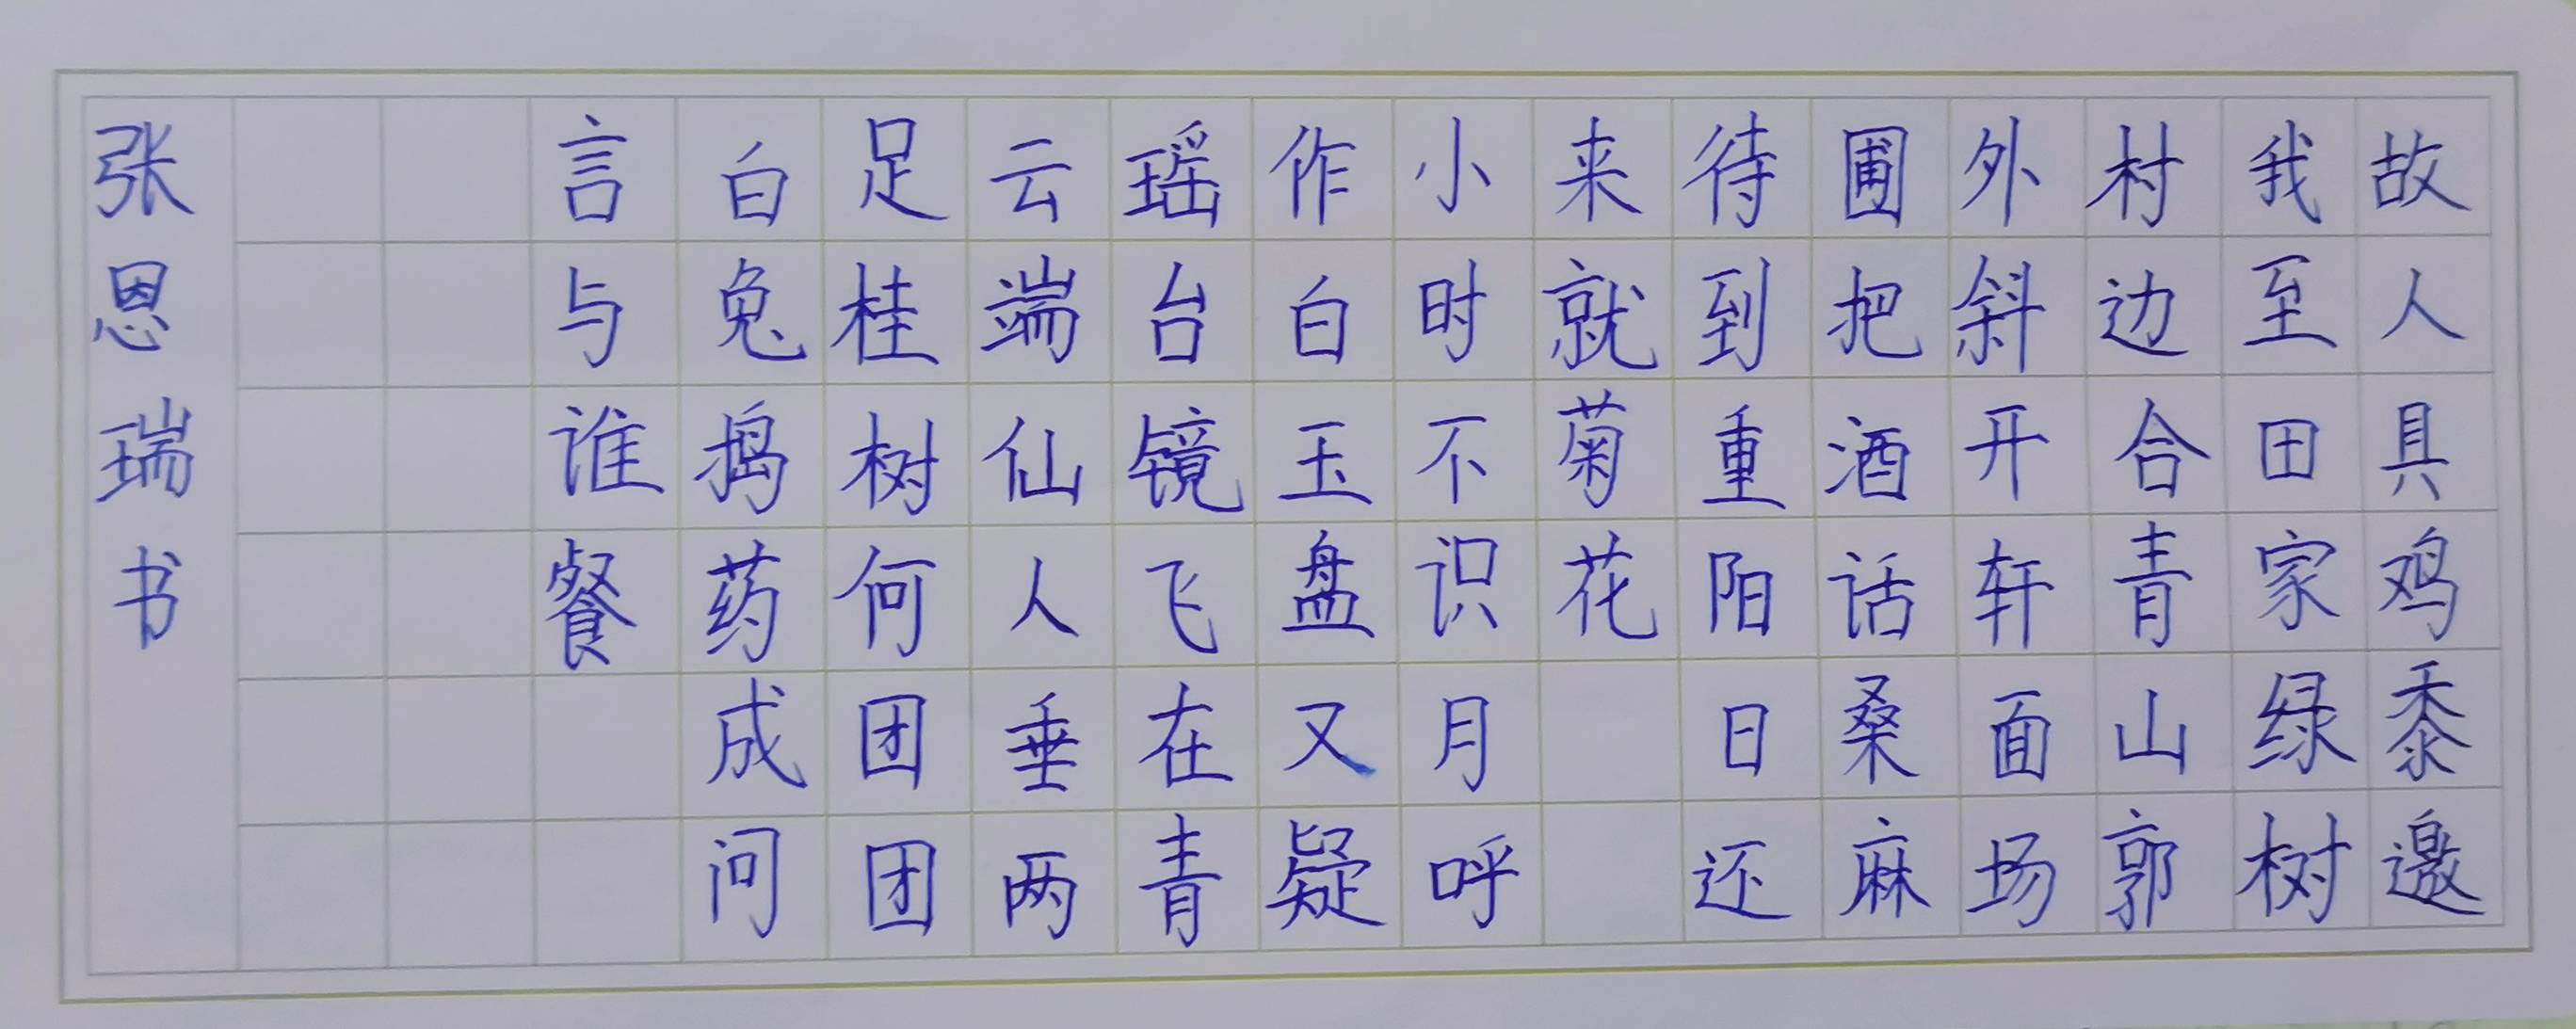 故人具鸡黍邀
我至田家绿树
村边合青山郭
外斜开轩面场
圃把酒话桑麻
待到重阳日还
来就菊花
小时不识月呼
作白玉盘又疑
瑶台镜飞在青
云端仙人垂两
足桂树何团团
白兔捣药成问
言与谁餐
张恩瑞书